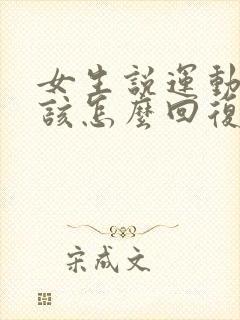 女生說運動
該怎麼回復
宋成文